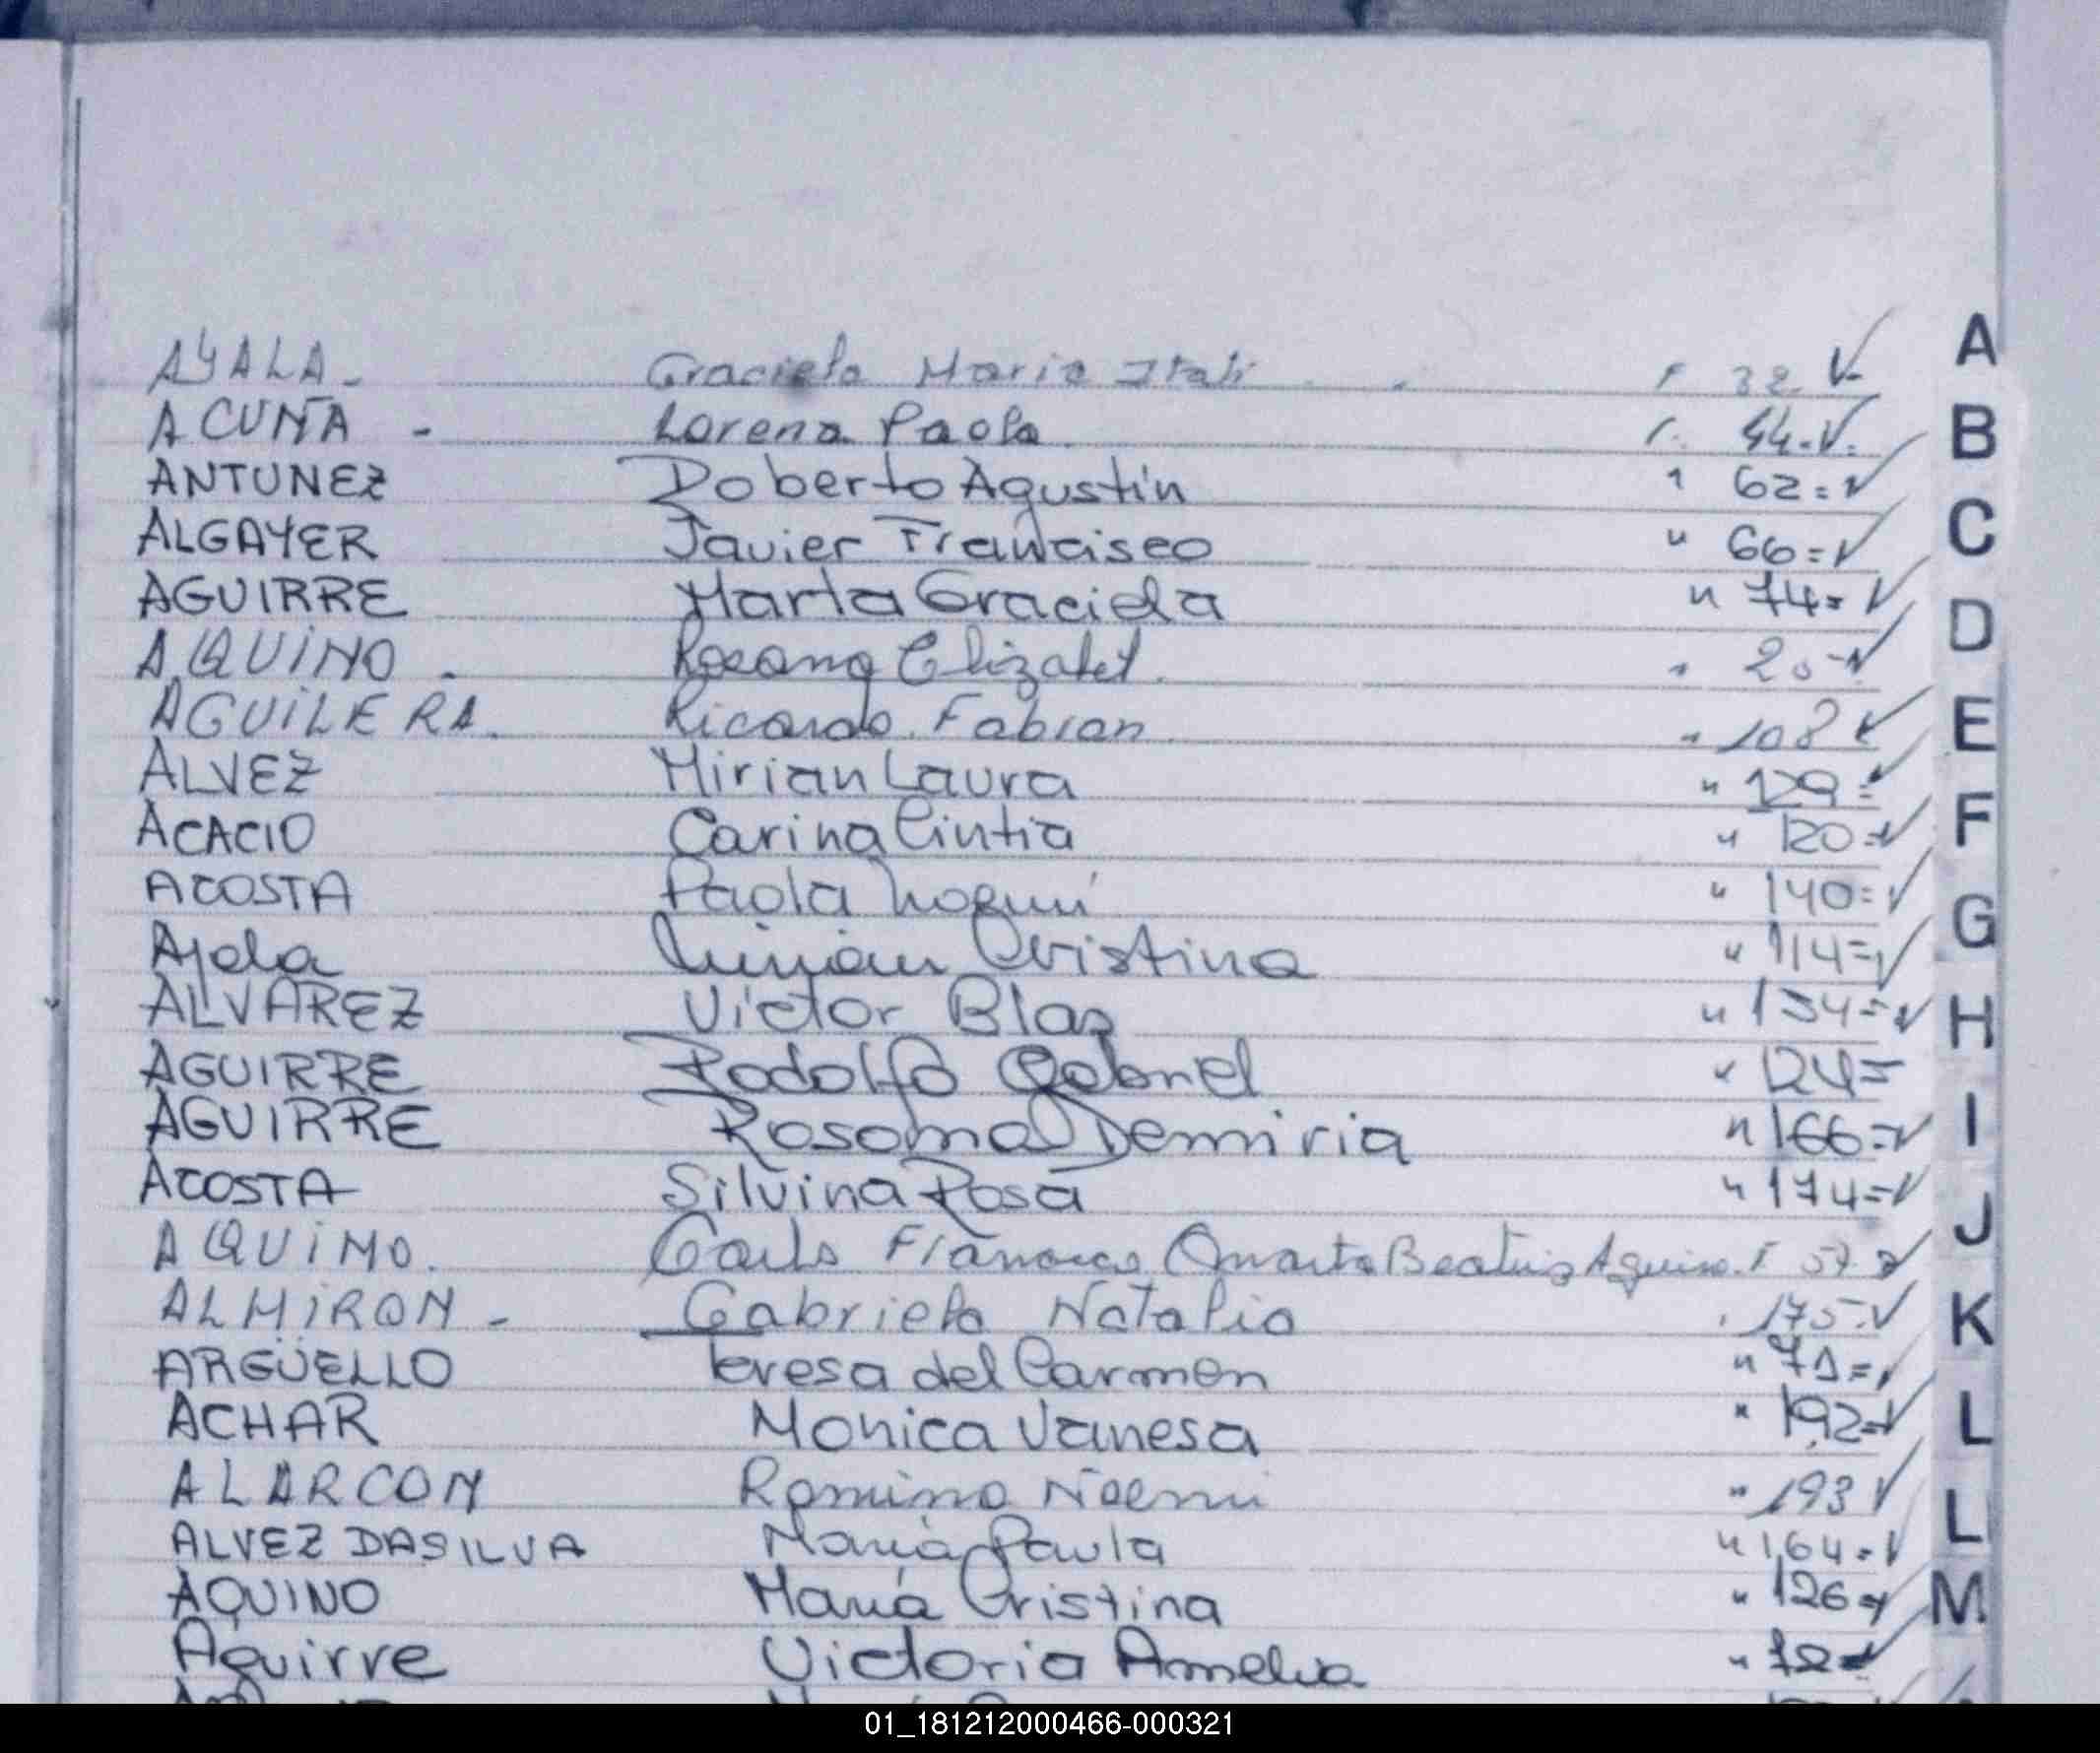 AYALA - Graciela Maria Itati F 32 ✓
ACUÑA - Lorena Paola " 44. ✓
ANTUNEZ Roberto Agustín " 62= ✓
ALGAYER Javier Francisco " 66= ✓
AGUIRRE Marta Graciela " 74= ✓
AQUINO - Rosana Elizabet " 20 - ✓
AGUILERA. Ricardo Fabian " 108 ✓
ALVEZ Mirian Laura " 129= ✓
ACACIO Carina Cintia " 120= ✓
ACOSTA Paola Noemí " 140= ✓
Ayala Cristina " 114= ✓
ALVAREZ Victor Blas " 154= ✓
AGUIRRE Rodolfo Gabriel " 124=
AGUIRRE Rosana Demiria " 166= ✓
ACOSTA Silvina Rosa " 174= ✓
AQUINO. Carlos Francisco Beatriz Aquino. F 57 ✓
ALMIRON - Gabriela Natalia " 175 - ✓
ARGÜELLO Teresa del Carmen " 71= ✓
ACHAR Monica Vanesa " 192= ✓
ALARCON Romina Noemi " 193 ✓
ALVEZ DASILVA María Paula " 164= ✓
AQUINO María Cristina " 126= ✓
Aguirre Victoria Amelia " 72= ✓
A
B
C
D
E
F
G
H
I
J
K
L
L
M
01_181212000466-000321